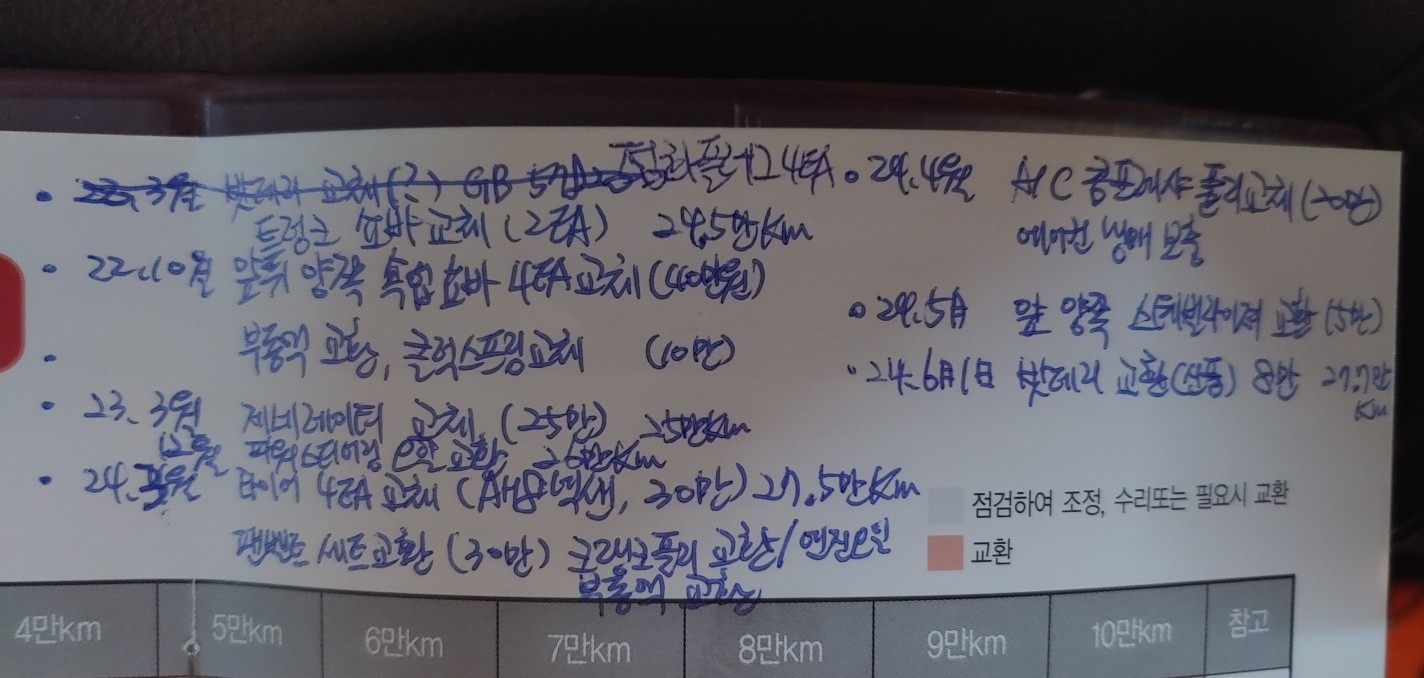 22. 3월 밧데리 교체(?) GB 점화플러그 4EA
트렁크 쇼바 교체 (2EA) 24.5만Km
22.10월 앞뒤 양쪽 쇽업쇼바 4EA 교체 (40만원)
부동액 교환, 클럭스프링 교체 (10만)
23. 3월 제네레이터 교체 (25만) 25만Km
12월 파워스티어링 오일 교환 26만Km
24. 월 타이어 4EA 교체 (넥센, 30만) 27.5만Km
팬벨트 셋트 교환 (30만) 크랭크풀리 교환/엔진오일
부동액 교환
24.4월 A/C 콤프레샤 풀리교체 (20만)
에어컨 냉매 보충
24.5月 앞 양쪽 스테빌라이져 교환 (5만)
24.6月1日 밧데리 교환(신품) 8만 27.7만
Km
점검하여 조정, 수리또는 필요시 교환
교환
4만km 5만km 6만km 7만km 8만km 9만km 10만km 참고